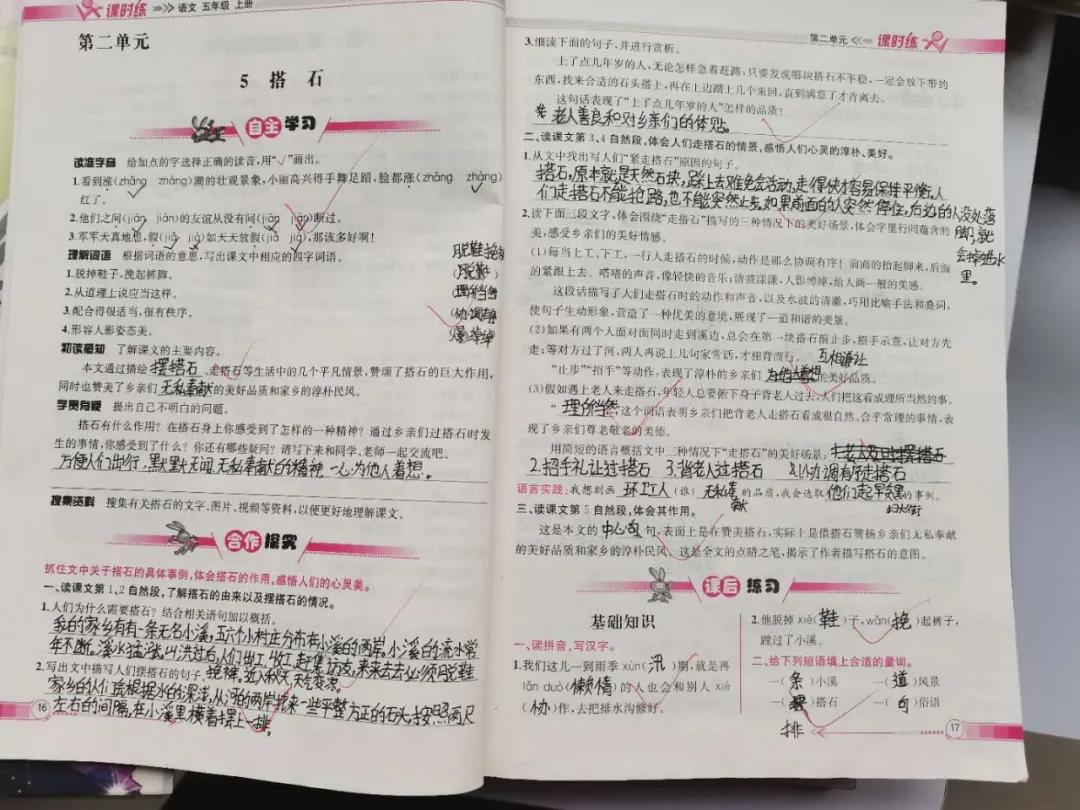 课时练 语文 五年级 上册
第二单元
5 搭石
自主学习
读准字音 给加点的字选择正确的读音,用“√”画出。
1.看到涨(zhǎng zhàng)潮的壮观景象,小丽高兴得手舞足蹈,脸都涨(zhǎng zhàng)
红了。
2.他们之间(jiān jiàn)的友谊从没有间(jiān jiàn)断过。
3.军军天真地想,假(jiǎ jià)如天天放假(jiǎ jià),那该多好啊!
理解词语 根据词语的意思,写出课文中相应的四字词语。
脱鞋挽裤
1.脱掉鞋子,挽起裤脚。
2.从道理上说应当这样。 (理所当然)
3.配合得很适当,很有秩序。 (协调有序)
4.形容人影姿态美。
初读感知 了解课文的主要内容。
本文通过描绘 摆搭石、走搭石等生活中的几个平凡情景,赞颂了搭石的巨大作用,
同时也赞美了乡亲们 无私奉献 的美好品质和家乡的淳朴民风。
学贵有疑 提出自己不明白的问题。
搭石有什么作用?在搭石身上你感受到了怎样的一种精神?通过乡亲们过搭石时发
生的事情,你感受到了什么?你还有哪些疑问?请写下来和同学、老师一起交流吧。
方便人们出行,默默无闻,无私奉献的精神,一心为他人着想。
搜集资料 搜集有关搭石的文字、图片、视频等资料,以便更好地理解课文。
合作探究
抓住文中关于搭石的具体事例,体会搭石的作用,感悟人们的心灵美。
一、读课文第1、2自然段,了解搭石的由来以及摆搭石的情况。
1.人们为什么需要搭石?结合相关语句加以概括。
我的家乡有一条无名小溪,五六个小村庄分布在小溪的两岸。小溪的流水常
年不断。溪水猛涨,山洪过后,人们出工,收工,赶集,访友,来来去去必须脱鞋
2.写出文中描写人们摆搭石的句子。
挽裤。进入秋天,天气变凉,
家乡的人们根据水的深浅,从河的两岸找来一些平整方正的石头,按照两尺
左右的间隔,在小溪里横着摆上一排。
16
第二单元 课时练
3.细读下面的句子,并进行赏析。
上了点儿年岁的人,无论怎样急着赶路,只要发现哪块搭石不平稳,一定会放下带的
东西,找来合适的石头搭上,再在上边踏上几个来回,直到满意了才肯离去。
这句话表现了“上了点儿年岁的人”怎样的品质?
老人善良和对乡亲们的体贴。
二、读课文第3、4自然段,体会人们走搭石的情景,感悟人们心灵的淳朴、美好。
1.从文中找出写人们“紧走搭石”原因的句子。
搭石,原本就是天然石块,踩上去难免会活动,走得快才容易保持平衡。人
们走搭石不能抢路,也不能突然止步。如果前面的人突然停住,后边的人没处落
脚,就
会掉进水
里。
2.读下面三段文字,体会围绕“走搭石”描写的三种情况下的美好场景,体会字里行间蕴含的
美,感受乡亲们的美好情感。
(1)每当上工、下工,一行人走搭石的时候,动作是那么协调有序!前面的抬起脚来,后面
的紧跟上去。嗒嗒的声音,像轻快的音乐;清波漾漾,人影绰绰,给人画一般的美感。
这段话描写了人们走搭石时的动作和声音,以及水波的清澈,巧用比喻手法和叠词,
使句子生动形象,营造了一种优美的意境,展现了一道和谐的美景。
(2)如果有两个人面对面同时走到溪边,总会在第一块搭石前止步,招手示意,让对方先
走;等对方过了河,两人再说上几句家常话,才相背而行。
互相谦让
“止步”“招手”等动作,表现了淳朴的乡亲们 为他人着想 的美好品质。
(3)假如遇上老人来走搭石,年轻人总要俯下身子背老人过去,人们把这看成理所当然的事。
“理所当然”这个词语表明乡亲们把背老人走搭石看成很自然、合乎常理的事情,表
现了乡亲们尊老敬老的美德。
用简短的语言概括文中三种情况下“走搭石”的美好场景:
2.招手礼让过搭石 3.背老人过搭石 1.协调有序走搭石
语言实践:我想刻画 环卫工人 (谁) 无私奉献 的品质,我会选取 他们起早贪黑扫大街 的事例。
三、读课文第5自然段,体会其作用。
这是本文的 中心句 句,表面上是在赞美搭石,实际上是借搭石赞扬乡亲们无私奉献
的美好品质和家乡的淳朴民风。这是全文的点睛之笔,揭示了作者描写搭石的意图。
课后练习
基础知识
一、读拼音,写汉字。
1.我们这儿一到雨季 xùn( 汛 )期,就是再
lǎn duò( 懒惰 )的人也会和别人 xié
( 协 )作,去把排水沟修好。
2.他脱掉 xié( 鞋 )子,wǎn( 挽 )起裤子,
蹚过了小溪。
二、给下列短语填上合适的量词。
一( 条 )小溪 一( 道 )风景
一( 排 )搭石 一( 句 )俗语
17